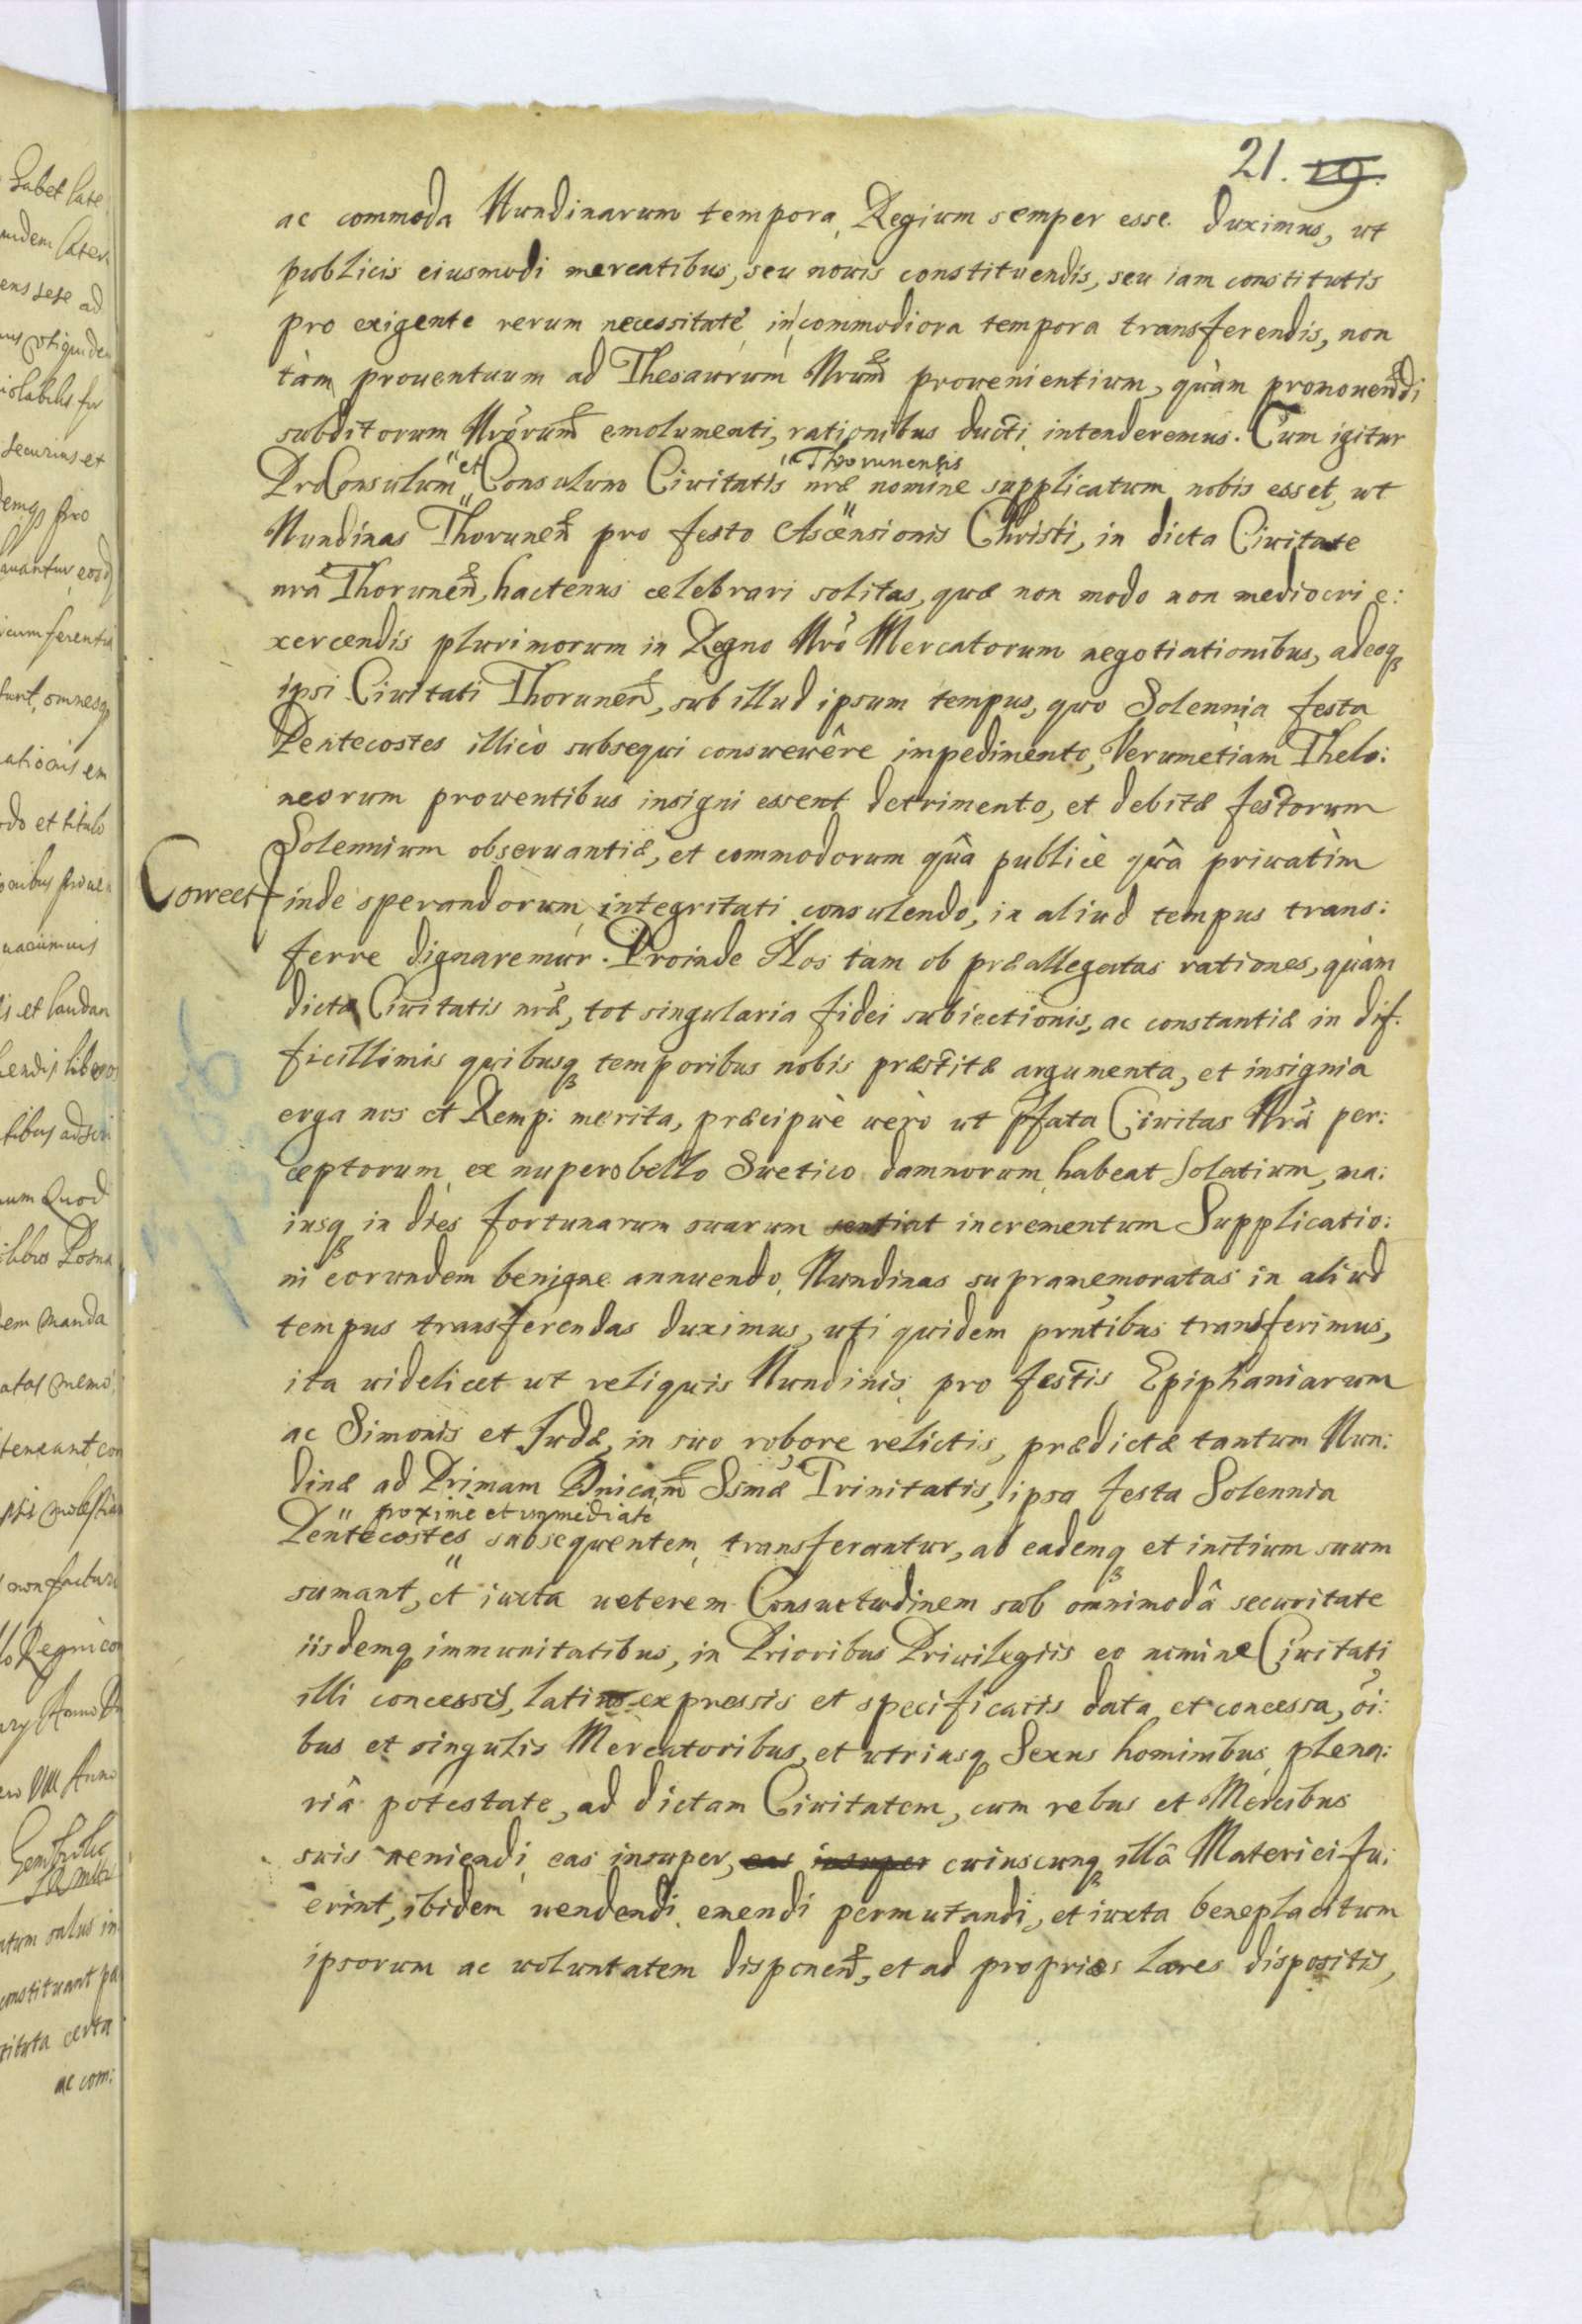 21. 19.
ac commoda Nundinarum tempora, Regium semper esse duximus, ut
publicis eiusmodi mercatibus, seu nouis constituendis, seu iam constitutis
pro exigente rerum necessitate, in commodiora tempora transferendis, non
tàm prouentuum ad Thesaurum Nrum prouenientium, quàm promouendi
subditorum Nrorum emolumenti, rationibus ducti intenderemus. Cum igitur
ProConsulum et Consulum Ciuitatis nræ Thorunensis nomine supplicatum nobis esset, ut
Nundinas Thorunen pro festo Ascensionis Christi, in dicta Ciuitate
nrã Thorunen, hactenus celebrari solitas, quæ non modo non mediocri e:
xercendis plurimorum in Regno Nrõ Mercatorum negotiationibus, adeoq
ipsi Ciuitati Thorunen, sub illud ipsum tempus, quo Solennia festa
Pentecostes illicò subsequi consueuêre impedimento, Verumetiam Thelo:
neorum prouentibus insigni essent detrimento, et debitæ festorum
Solennium obseruantiæ, et commodorum quâ publicè quâ priuatìm
Correct inde sperandorum integritati consulendo, in aliud tempus trans:
ferre dignaremur. Proinde Nos tam ob præallegatas rationes, quàm
dictæ Ciuitatis nræ, tot singularia fidei subiectionis, ac constantiæ in dif:
ficillimis quibusq temporibus nobis præstitæ argumenta, et insignia
erga nos et Remp: merita, præcipuè uerò ut pfata Ciuitas Nrã per:
ceptorum ex nupero bello Suetico damnorum habeat solatium, ma:
iusq in dies fortunarum suarum sentiat incrementum Supplicatio:
ni eorundem benigne annuendo, Nundinas supramemoratas in aliud
tempus transferendas duximus, uti quidem pntibus transferimus,
ita uidelicet ut reliquis Nundinis pro festis Epiphaniarum
ac Simonis et Judæ, in suo robore relictis, prædictæ tantum Nun:
dinæ ad Primam Dnicam Ssmæ Trinitatis, ipsa festa Solennia
Pentecostes proximè et immediatè subsequentem transferantur, ab eademq et initium suum
sumant, et iuxta ueterem Consuetudinem sub omnimodâ securitate
iisdemq immunitatibus, in Prioribus Priuilegiis eo nomine Ciuitati
illi concessis, latius expressis et specificatis data et concessa, õi:
bus et singulis Mercatoribus, et utriusq Sexus hominibus plena:
riâ potestate, ad dictam Ciuitatem, cum rebus et Mercibus
suis ueniendi, eas insuper, eas insuper cuiuscunq illã Materiei fu:
erint, ibidem uendendi emendi permutandi, et iuxta beneplacitum
ipsorum ac uoluntatem disponen, et ad proprios lares dispositis,